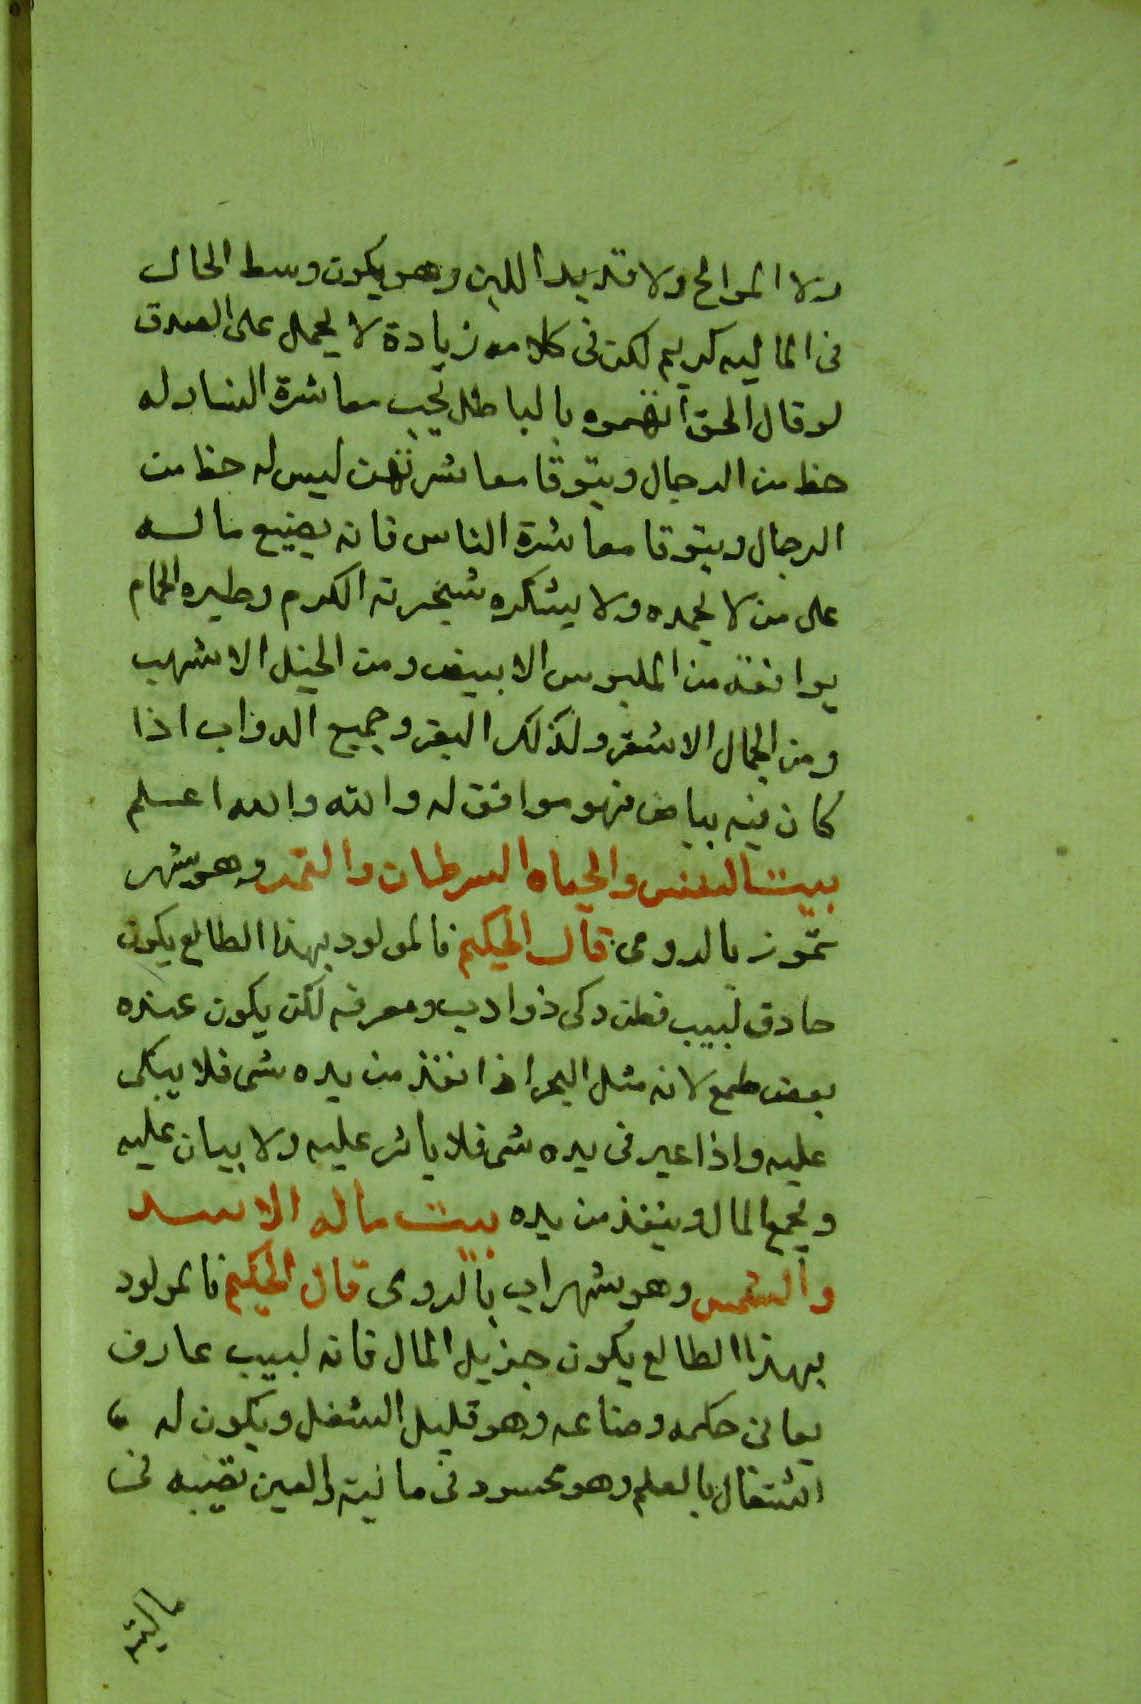 ولا الموالح ولا قديد اللبن وهو يكون وسط الحال
فى الماليه كريم لكن فى كلامه زيادة لا يحمل على الصدق
لو قال الحق اتهموه بالباطل يحب معاشرة النسا وله
حظ من الرجال ويتوقا معاشرتهن ليس له حظ من
الرجال ويتوقا معاشرة الناس فانه يضيع ماله
على من لا يحمده ولا يشكره شجرته الكرم وطيره الحمام
يوافقه من الملبوس الابيض ومن الخيل الاشهب
ومن الجمال الاشقر وكذلك البقر وجميع الدواب اذا
كان فيه بياض فهو موافق له والله اعلم
بيت النفس والحياه السرطان والقمر وهو شهر
تموز بالرومى قال الحكيم فالمولود بهذا الطالع يكون
حادق لبيب فطن دكى ذو ادب ومعرفه لكن يكون عنده
بعض طمع لانه مثل البحر اذا نفذ من يده شى فلا يبكى
عليه واذا عبر فى يده شى فلا ياثر عليه ولا يبان عليه
ويجمع المال وينفذ من يده بيت ماله الاسد
والشمس وهو شهر اب بالرومى قال الحكيم فالمولود
بهذا الطالع يكون جزيل المال فانه لبيب عارف
يعانى حكمه وصناعه وهو قليل الشغل ويكون له
اشتغال بالعلم وهو محسود فى ماليته والعين تصيبه فى
ماليته